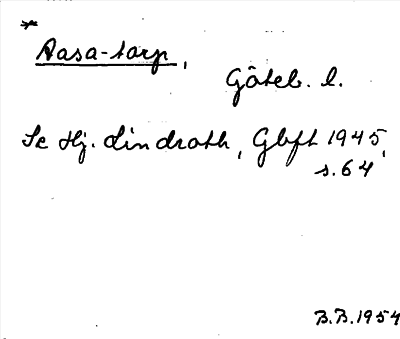 *
Aasa-tarp,
Göteb. l.
Se Hj. Lindroth, Gbft 1945,
s. 64
B.B. 1954